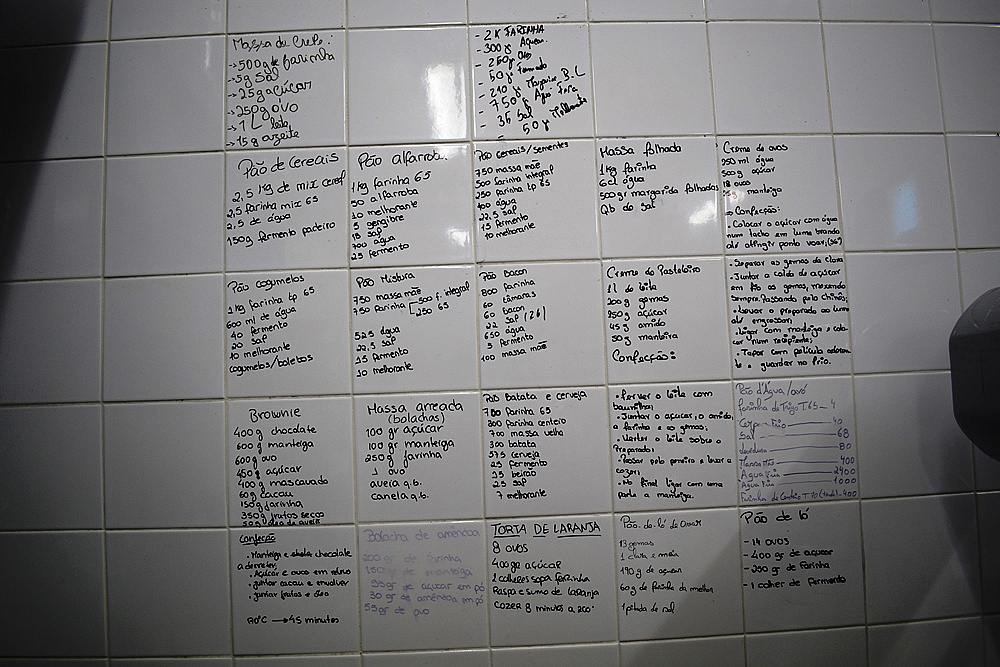 Massa de Crepe:
→500g de farinha
→5g sal
→25g açúcar
→250g ovo
→1L leite
→15g azeite
- 2K FARINHA
- 300gr Açucar
- 250gr Ovo
- 50gr Fermento
- 210gr Margarina B.L
- 750gr Água Fria
- 35 Sal
- 50gr Melhorante
Pão de Cereais
2,5 kg de mix cereal
2,5 farinha mix 65
2,5 de água
150g fermento padeiro
Pão alfarroba
1kg farinha 65
50 alfarroba
10 melhorante
5 gengibre
18 sal
700 água
25 fermento
Pão cereais/sementes
750 massa mãe
500 farinha integral
250 farinha tp 65
400 água
22.5 sal
15 fermento
10 melhorante
Massa folhada
1kg farinha
6cl água
500gr margarida folhados
Qb de sal
Creme de ovos
250 ml água
500g açúcar
18 ovos
manteiga
⇒ Confecção:
• Colocar o açúcar com água
num tacho em lume brando
até atingir ponto voar;
• Separar as gemas da clara
• Juntar a calda de açúcar
em fio as gemas, mexendo
sempre. Passando pelo chinês;
• Levar o preparado ao lume
até engrossar;
• Ligar com manteiga e colo-
car num recipiente;
• Tapar com película
e guardar no frio.
Pão cogumelos
1kg farinha tp 65
600 ml de água
40 fermento
20 sal
10 melhorante
cogumelos/boletos
Pão Mistura
750 massa mãe
750 farinha [500 f. integral
250 65
525 água
22.5 sal
15 fermento
10 melhorante
Pão Bacon
800 farinha
60 tâmaras
60 bacon
22 sal (26)
650 água
5 fermento
100 massa mãe
Creme de Pasteleiro
1l de leite
200g gemas
250g açúcar
45g amido
50g manteiga
Confecção:
• Ferver o leite com
baunilha;
• Juntar o açúcar, o amido,
a farinha e as gemas;
• Verter o leite sobre o
Preparado;
• Passar pelo peneiro e levar a
cozer;
• No final ligar com uma
parte a manteiga.
Brownie
400g chocolate
600g manteiga
600g ovo
450g açúcar
400g mascavado
60g cacau
150g farinha
350g frutos secos
50g óleo de aveia
Confeção
• Manteiga e chocolate
a derreter;
• Açúcar e ovos em
• juntar cacau e envolver
• juntar frutos e óleo
170°C → 45 minutos
Massa arreada
(bolachas)
100 gr açúcar
100 gr manteiga
250g farinha
1 ovo
aveia q.b.
canela q.b.
Pão batata e cerveja
700 farinha 65
300 farinha centeio
700 massa velha
300 batata
575 cerveja
25 fermento
35 beirão
25 sal
7 melhorante
Pão d'Água/ovó
Farinha de Trigo T65 — 4
Corpo Frio — 40
Sal — 68
Levedura — 80
Massa Mãe — 400
Água Fria — 2400
Água Fria — 1000
Farinha de Centeio T.70 — 400
Bolacha de amêndoa
200 gr de farinha
150 gr de manteiga
95 gr de açucar em pó
30 gr de amêndoa em pó
55 gr de ovo
TORTA DE LARANJA
8 ovos
400gr açúcar
1 colheres sopa farinha
Raspa e sumo de laranja
Cozer 8 minutos a 200°
Pão-de-ló de Ovar
13 gemas
1 clara e meia
190g de açucar
60g de farinha da melhor
1 pitada de sal
Pão de ló
- 14 ovos
- 400 gr de açucar
- 250 gr de farinha
- 1 colher de fermento